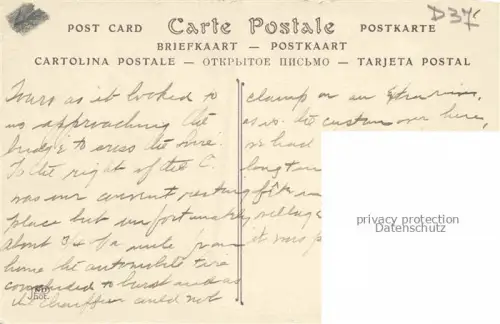 D37
POST CARD Carte Postale POSTKARTE
BRIEFKAART — POSTKAART
CARTOLINA POSTALE — ОТКРЫТОЕ ПИСЬМО — TARJETA POSTAL
Tours as it looked to
us approaching the
bridge to cross the
To the right of the C.
was our current resting
place but unfortunately
about 3/4 of a mile from
home the automobile tire
concluded to burst and as
the chauffeur could not
clamp on an
as is the custom over here,
we had
long
fête in
village
it was p
privacy protection
Datenschutz